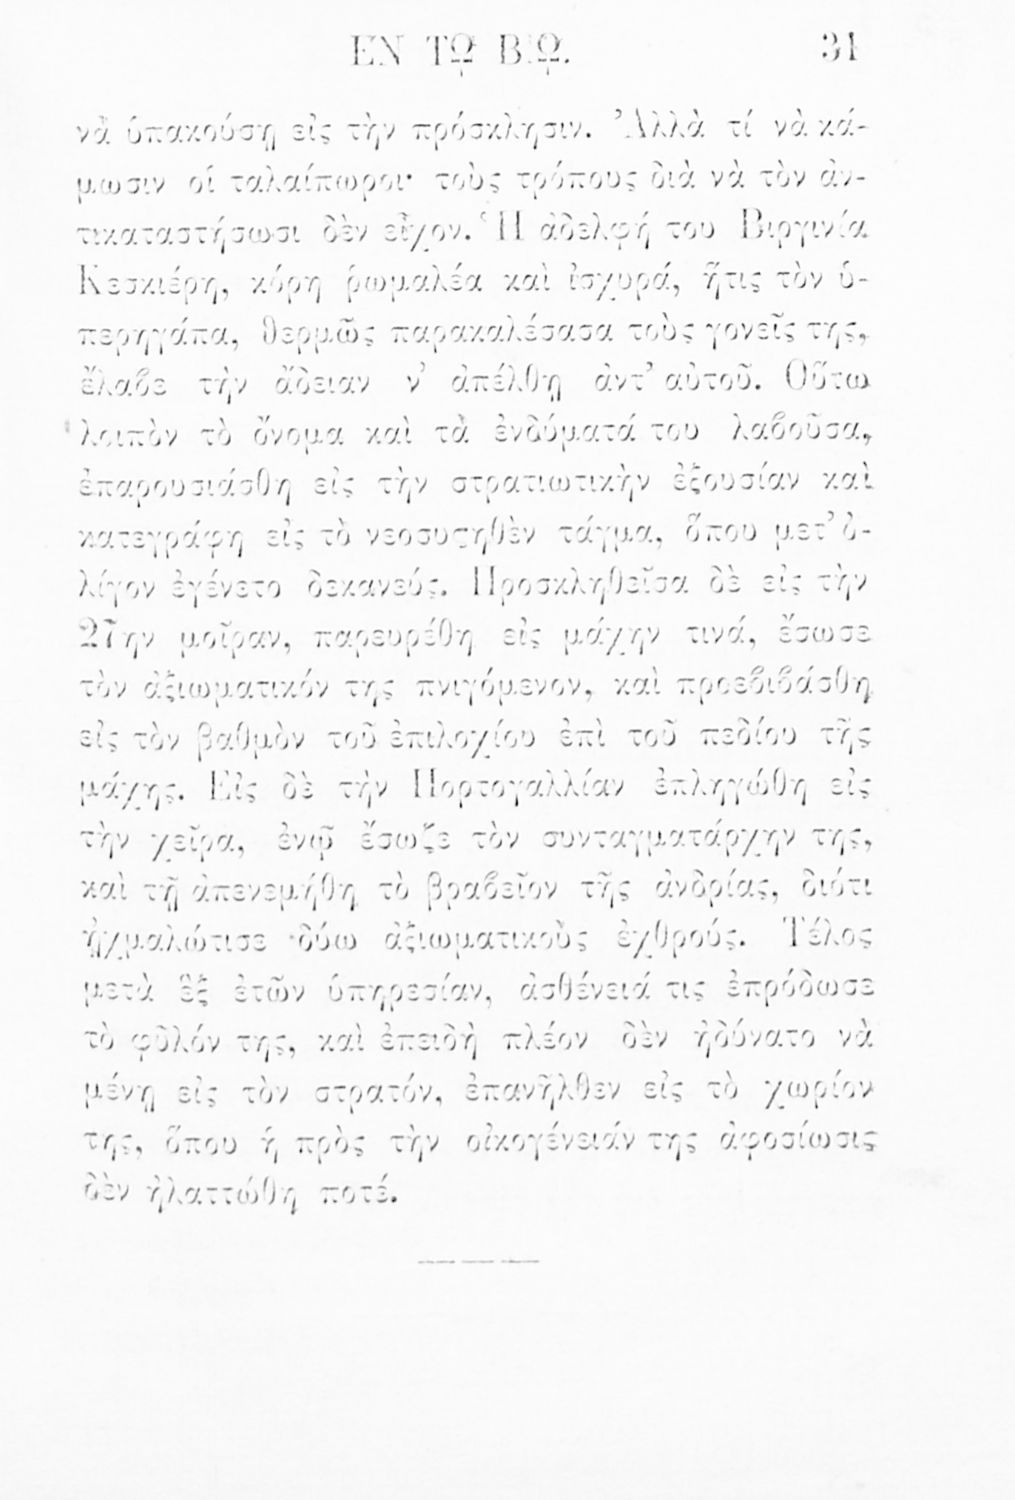 ΕΝ ΤΩ ΒΙΩ. 31
νὰ ὑπακούσῃ εἰς τὴν πρόσκλησιν. Ἀλλὰ τί νὰ κά-
μωσιν οἱ ταλαίπωροι· τοὺς τρόπους διὰ νὰ τὸν ἀν-
τικαταστήσωσι δὲν εἶχον. Ἡ ἀδελφή του Βιργινία
Κεσκιέρη, κόρη ῥωμαλέα καὶ ἰσχυρά, ἥτις τὸν ὑ-
περηγάπα, θερμῶς παρακαλέσασα τοὺς γονεῖς της,
ἔλαβε τὴν ἄδειαν ν' ἀπέλθῃ ἀντ' αὐτοῦ. Οὕτω
λοιπὸν τὸ ὄνομα καὶ τὰ ἐνδύματά του λαβοῦσα,
ἐπαρουσιάσθη εἰς τὴν στρατιωτικὴν ἐξουσίαν καὶ
κατεγράφη εἰς τὸ νεοσυϛηθὲν τάγμα, ὅπου μετ' ὀ-
λίγον ἐγένετο δεκανεύς. Προσκληθεῖσα δὲ εἰς τὴν
27ην μοῖραν, παρευρέθη εἰς μάχην τινά, ἔσωσε
τὸν ἀξιωματικόν της πνιγόμενον, καὶ προεβιβάσθη
εἰς τὸν βαθμὸν τοῦ ἐπιλοχίου ἐπὶ τοῦ πεδίου τῆς
μάχης. Εἰς δὲ τὴν Πορτογαλλίαν ἐπληγώθη εἰς
τὴν χεῖρα, ἐνῷ ἔσωζε τὸν συνταγματάρχην της,
καὶ τῇ ἀπενεμήθη τὸ βραβεῖον τῆς ἀνδρίας, διότι
ᾐχμαλώτισε δύω ἀξιωματικοὺς ἐχθρούς. Τέλος
μετὰ ἓξ ἐτῶν ὑπηρεσίαν, ἀσθένειά τις ἐπρόδωσε
τὸ φῦλόν της, καὶ ἐπειδὴ πλέον δὲν ἠδύνατο νὰ
μένῃ εἰς τὸν στρατόν, ἐπανῆλθεν εἰς τὸ χωρίον
της, ὅπου ἡ πρὸς τὴν οἰκογένειάν της ἀφοσίωσις
δὲν ἠλαττώθη ποτέ.